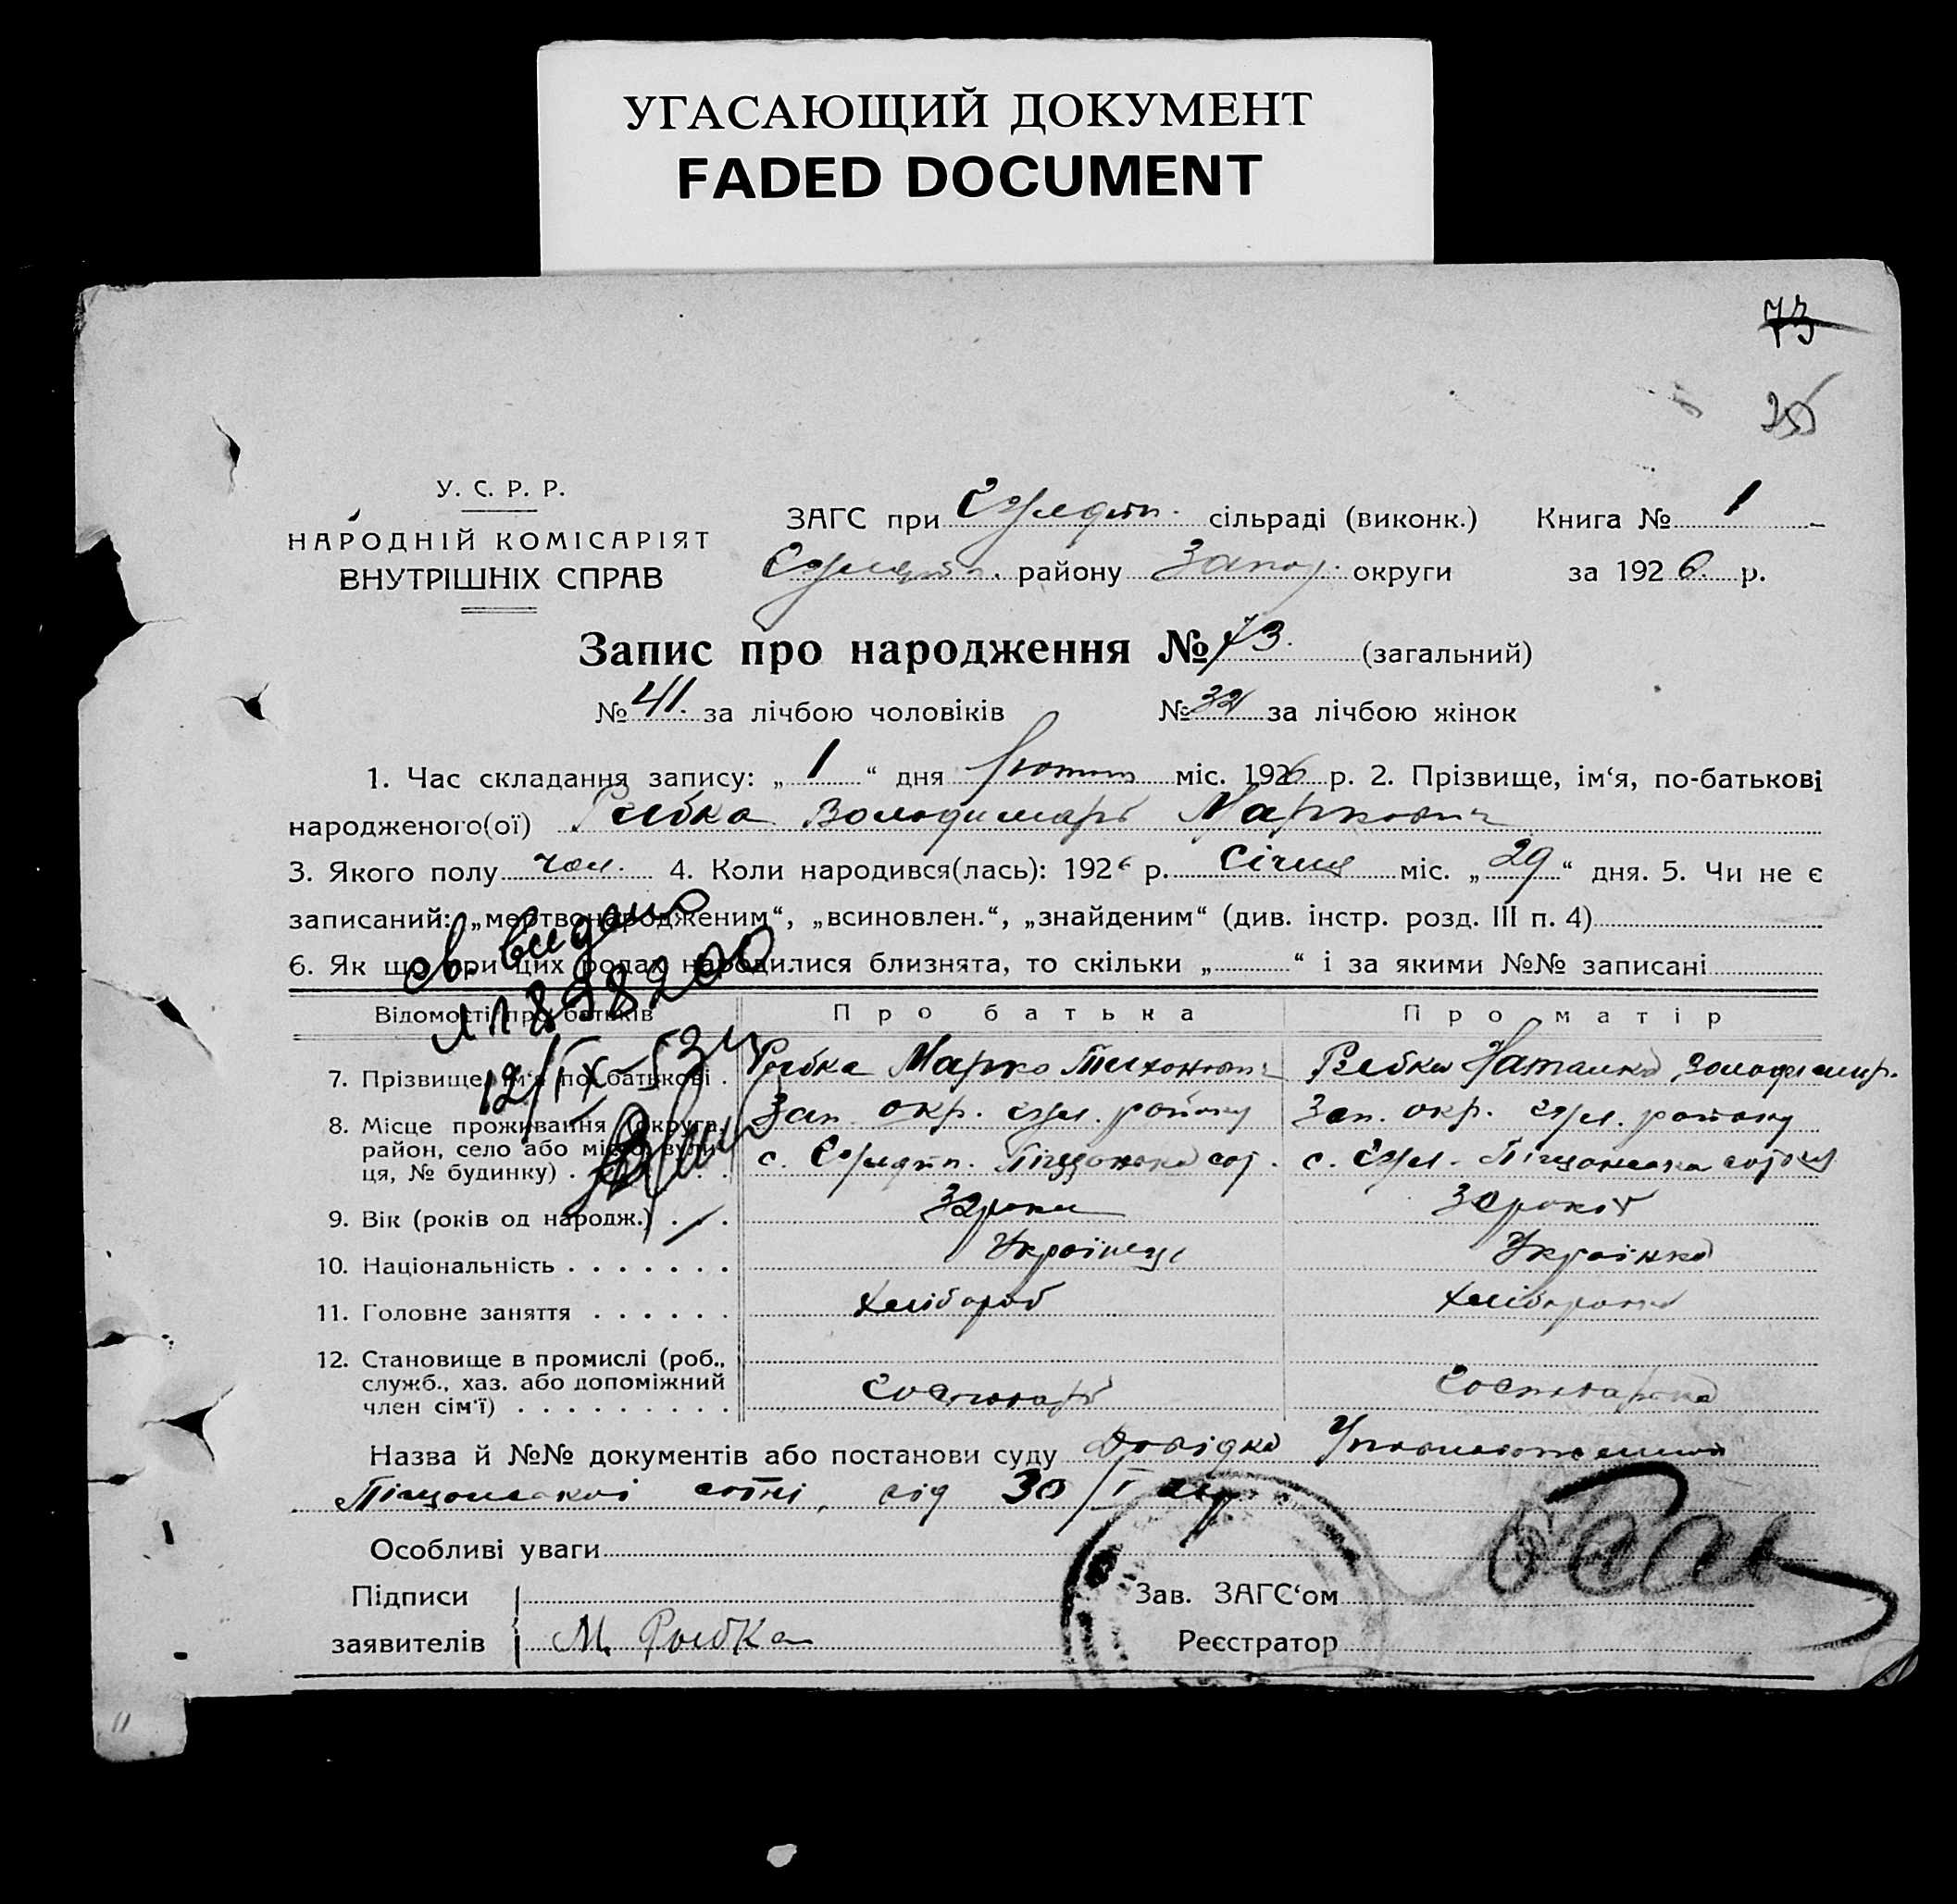 УГАСАЮЩИЙ ДОКУМЕНТ
FADED DOCUMENT
73
У. С. Р. Р.
НАРОДНІЙ КОМІСАРІЯТ
ВНУТРІШНІХ СПРАВ
ЗАГС при сільраді (виконк.) Книга № 1
району Запор. округи за 1926 р.
Запис про народження № 73. (загальний)
№ 41. за лічбою чоловіків № 32 за лічбою жінок
1. Час складання запису: „ 1 “ дня лютого міс. 1926 р. 2. Прізвище, ім‘я, по-батькові
народженого(ої) Рибка Володимиръ Маркович
3. Якого полу чол. 4. Коли народився(лась): 1926 р. Січня міс. „ 29 “ дня. 5. Чи не є
записаний: „мертвонародженим“, „всиновлен.“, „знайденим“ (див. інстр. розд. III п. 4)
6. Як що при цих родах народилися близнята, то скільки „ “ і за якими №№ записані
св. видано
12/IX-53
Відомості про батьків Про батька Про матір
7. Прізвище, ім‘я по-батькові . Рибка Марко Тихонович Рибка Наталка Володимир.
8. Місце проживання (округа, район, село або місто, вулиця, № будинку) . Зап. окр. району Зап. окр. району
с. с.
9. Вік (років од народж.) . . . 32 роки 30 років
10. Національність . . . . . . . Українець Українка
11. Головне заняття . . . . . . Хлібороб Хліборобка
12. Становище в промислі (роб., служб., хаз. або допоміжний член сім‘ї) . . . . . . . . .
Назва й №№ документів або постанови суду Довідка Уповноваженного
сотні, від 30/I 26 р.
Особливі уваги
Підписи Зав. ЗАГС‘ом
заявителів М. Рыбка Реєстратор